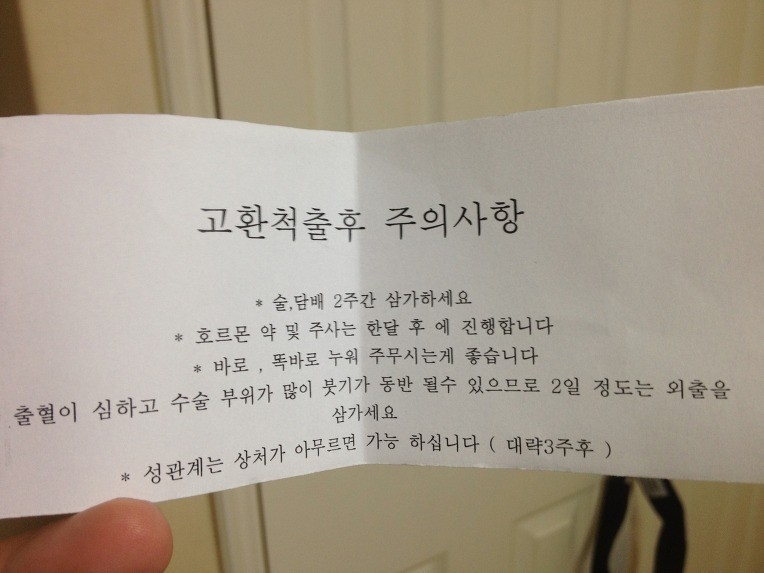 고환척출후 주의사항
* 술,담배 2주간 삼가하세요
* 호르몬 약 및 주사는 한달 후 에 진행합니다
* 바로 , 똑바로 누워 주무시는게 좋습니다
출혈이 심하고 수술 부위가 많이 붓기가 동반 될수 있으므로 2일 정도는 외출을
삼가세요
* 성관계는 상처가 아무르면 가능 하십니다 ( 대략3주후 )